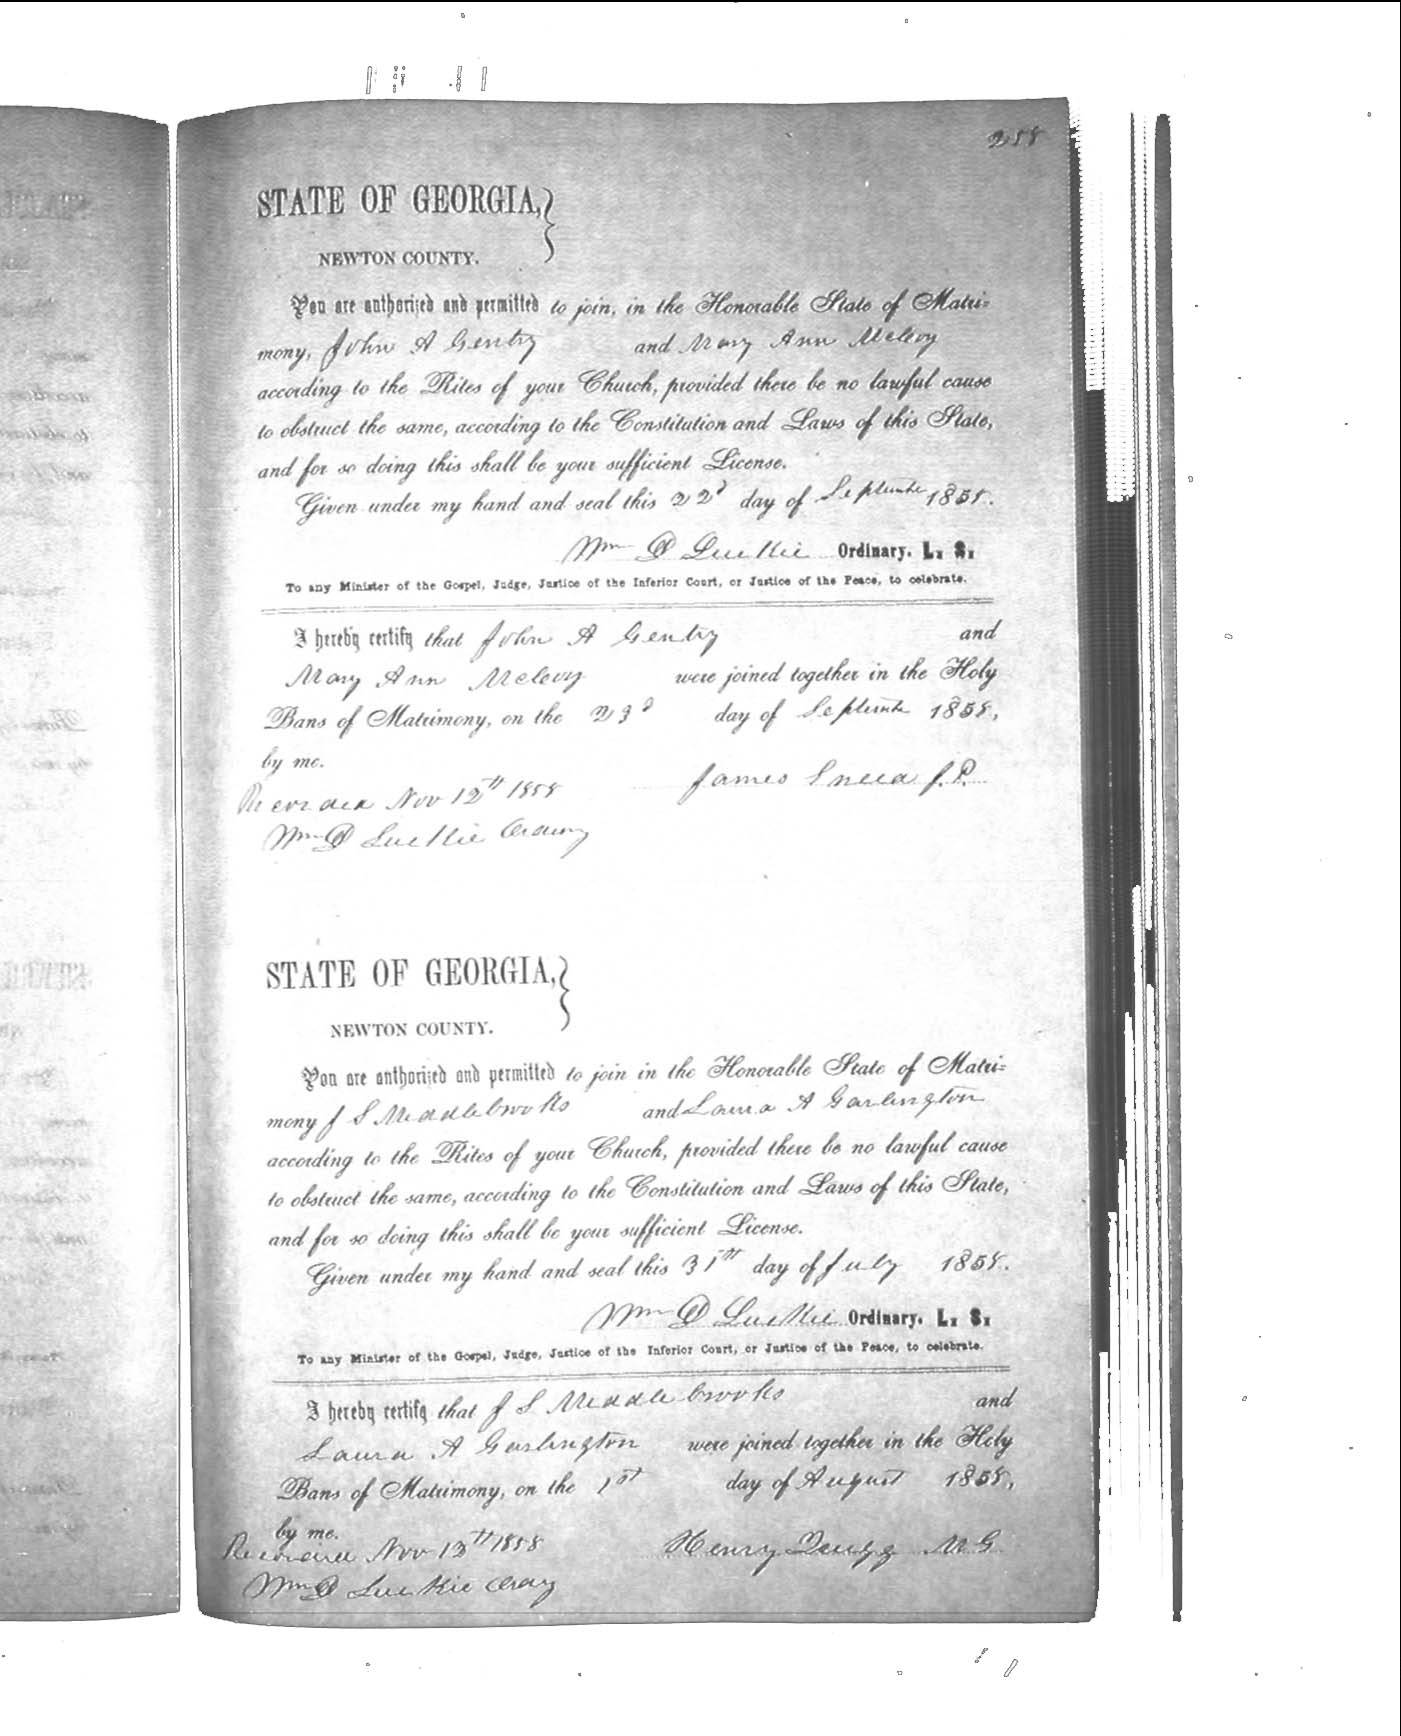 258
STATE OF GEORGIA,
NEWTON COUNTY.
You are authorized and permitted to join, in the Honorable State of Matri=
mony, John A Gentry and Mary Ann McLevy
according to the Rites of your Church, provided there be no lawful cause
to obstruct the same, according to the Constitution and Laws of this State,
and for so doing this shall be your sufficient License.
Given under my hand and seal this 22d day of September 1858.
Wm D Luckie Ordinary. L. S.
To any Minister of the Gospel, Judge, Justice of the Inferior Court, or Justice of the Peace, to celebrate.
I hereby certify that John A Gentry and
Mary Ann McLevy were joined together in the Holy
Bans of Matrimony, on the 23d day of September 1858,
by me.
James Sneed J.P.
Recorded Nov 12th 1858
Wm D Luckie Ordinary
STATE OF GEORGIA,
NEWTON COUNTY.
You are authorized and permitted to join in the Honorable State of Matri=
mony J S Middlebrooks and Laura A Garlington
according to the Rites of your Church, provided there be no lawful cause
to obstruct the same, according to the Constitution and Laws of this State,
and for so doing this shall be your sufficient License.
Given under my hand and seal this 31th day of July 1858.
Wm D Luckie Ordinary. L. S.
To any Minister of the Gospel, Judge, Justice of the Inferior Court, or Justice of the Peace, to celebrate.
I hereby certify that J S Middlebrooks and
Laura A Garlington were joined together in the Holy
Bans of Matrimony, on the 1st day of August 1858,
by me.
Recorded Nov 12th 1858 Henry M G
Wm D Luckie Ordy